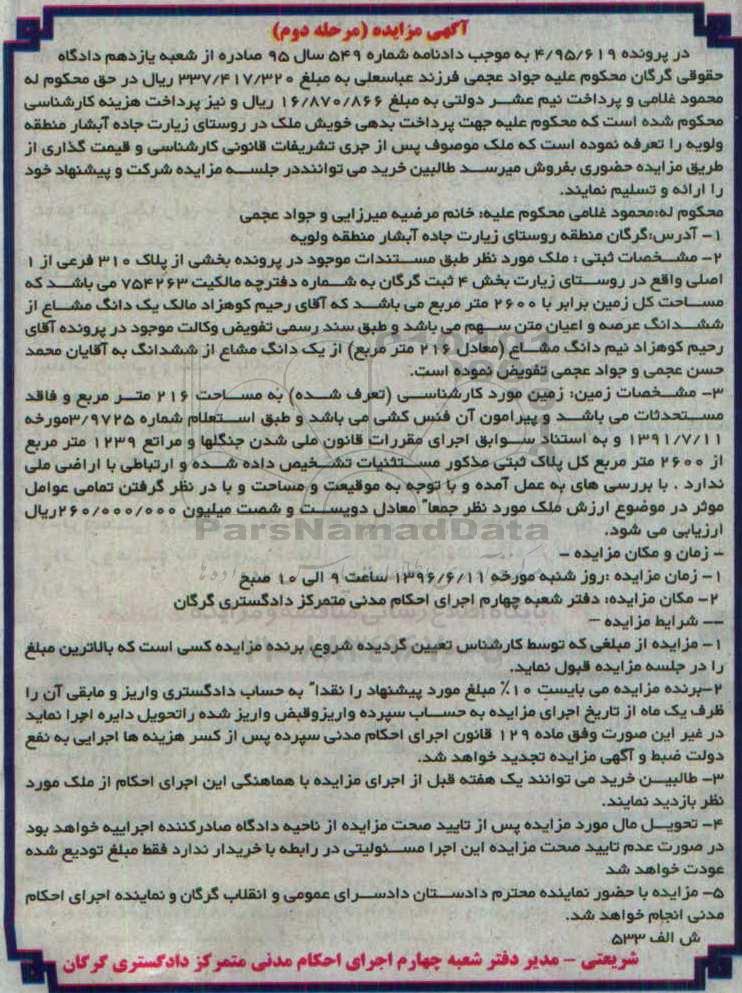 آگهی مزایده (مرحله دوم)
در پرونده ۴/۹۵/۶۱۹ به موجب دادنامه شماره ۵۴۹ سال ۹۵ صادره از شعبه یازدهم دادگاه
حقوقی گرگان محکوم علیه جواد عجمی فرزند عباسعلی به مبلغ ۳۳۷/۴۱۷/۳۲۰ ریال در حق محکوم له
محمود غلامی و پرداخت نیم عشر دولتی به مبلغ ۱۶/۸۷۰/۸۶۶ ریال و نیز پرداخت هزینه کارشناسی
محکوم شده است که محکوم علیه جهت پرداخت بدهی خویش ملک در روستای زیارت جاده آبشار منطقه
ولویه را تعرفه نموده است که ملک موصوف پس از جری تشریفات قانونی کارشناسی و قیمت گذاری از
طریق مزایده حضوری بفروش میرسد طالبین خرید می تواننددر جلسه مزایده شرکت و پیشنهاد خود
را ارائه و تسلیم نمایند.
محکوم له:محمود غلامی محکوم علیه: خانم مرضیه میرزایی و جواد عجمی
۱- آدرس:گرگان منطقه روستای زیارت جاده آبشار منطقه ولویه
۲- مشخصات ثبتی : ملک مورد نظر طبق مستندات موجود در پرونده بخشی از پلاک ۳۱۰ فرعی از ۱
اصلی واقع در روستای زیارت بخش ۴ ثبت گرگان به شماره دفترچه مالکیت ۷۵۴۲۶۳ می باشد که
مساحت کل زمین برابر با ۲۶۰۰ متر مربع می باشد که آقای رحیم کوهزاد مالک یک دانگ مشاع از
ششدانگ عرصه و اعیان متن سهم می باشد و طبق سند رسمی تفویض وکالت موجود در پرونده آقای
رحیم کوهزاد نیم دانگ مشاع (معادل ۲۱۶ متر مربع) از یک دانگ مشاع از ششدانگ به آقایان محمد
حسن عجمی و جواد عجمی تفویض نموده است.
۳- مشخصات زمین: زمین مورد کارشناسی (تعرف شده) به مساحت ۲۱۶ متر مربع و فاقد
مستحدثات می باشد و پیرامون آن فنس کشی می باشد و طبق استعلام شماره ۳/۹۷۲۵مورخه
۱۳۹۱/۷/۱۱ و به استناد سوابق اجرای مقررات قانون ملی شدن جنگلها و مراتع ۱۲۳۹ متر مربع
از ۲۶۰۰ متر مربع کل پلاک ثبتی مذکور مستثنیات تشخیص داده شده و ارتباطی با اراضی ملی
ندارد . با بررسی های به عمل آمده و با توجه به موقیعت و مساحت و با در نظر گرفتن تمامی عوامل
موثر در موضوع ارزش ملک مورد نظر جمعا" معادل دویست و شصت میلیون ۲۶۰/۰۰۰/۰۰۰ریال
ارزیابی می شود.
ParsNamadData
- زمان و مکان مزایده -
۱- زمان مزایده :روز شنبه مورخه ۱۳۹۶/۶/۱۱ ساعت ۹ الی ۱۰ صبح
۲- مکان مزایده: دفتر شعبه چهارم اجرای احکام مدنی متمرکز دادگستری گرگان
-- شرایط مزایده -
۱- مزایده از مبلغی که توسط کارشناس تعیین گردیده شروع، برنده مزایده کسی است که بالاترین مبلغ
را در جلسه مزایده قبول نماید.
۲-برنده مزایده می بایست ۱۰٪ مبلغ مورد پیشنهاد را نقدا" به حساب دادگستری واریز و مابقی آن را
ظرف یک ماه از تاریخ اجرای مزایده به حساب سپرده واریزوقبض واریز شده راتحویل دایره اجرا نماید
در غیر این صورت وفق ماده ۱۲۹ قانون اجرای احکام مدنی سپرده پس از کسر هزینه ها اجرایی به نفع
دولت ضبط و آگهی مزایده تجدید خواهد شد.
۳- طالبین خرید می توانند یک هفته قبل از اجرای مزایده با هماهنگی این اجرای احکام از ملک مورد
نظر بازدید نمایند.
۴- تحویل مال مورد مزایده پس از تایید صحت مزایده از ناحیه دادگاه صادرکننده اجراییه خواهد بود
در صورت عدم تایید صحت مزایده این اجرا مسئولیتی در رابطه با خریدار ندارد فقط مبلغ تودیع شده
عودت خواهد شد
۵- مزایده با حضور نماینده محترم دادستان دادسرای عمومی و انقلاب گرگان و نماینده اجرای احکام
مدنی انجام خواهد شد.
ش الف ۵۳۳
شریعتی - مدیر دفتر شعبه چهارم اجرای احکام مدنی متمرکز دادگستری گرگان